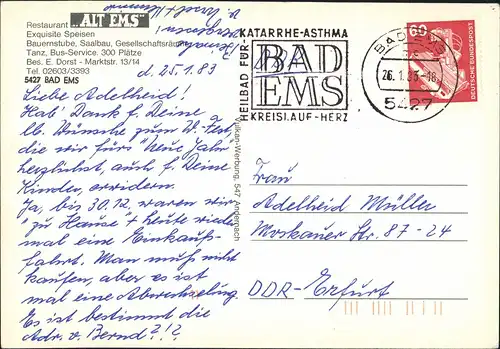 Restaurant „ALT EMS"
Exquisite Speisen
Bauernstube, Saalbau, Gesellschaftsräume
Tanz, Bus-Service. 300 Plätze
Bes. E. Dorst - Marktstr. 13/14
Tel. 02603/3393
5427 BAD EMS
d. 25.1.83
Liebe Adelheid!
Hab' Dank f. Deine
lb. Wünsche zum W. Fest
die wir fürs Neue Jahr
herzlichst, auch f. Deine
Kinder, erwidern.
Ja, bis 30.12. waren wir
"zu Hause" + heute wieder
mal eine Einkaufs-
fahrt. Man muß nicht
kaufen, aber es ist
mal eine Abwechselung
Es ist bestimmt die
Adr. v. Bernd?!?
Vulkan-Werbung, 547 Andernach
HEILBAD FÜR
KATARRHE-ASTHMA
BAD
EMS
KREISL.AUF-HERZ
BAD EMS
26.1.83-18
5427
60
DEUTSCHE BUNDESPOST
Frau
Adelheid Müller
Moskauer Str. 87-24
DDR-Erfurt